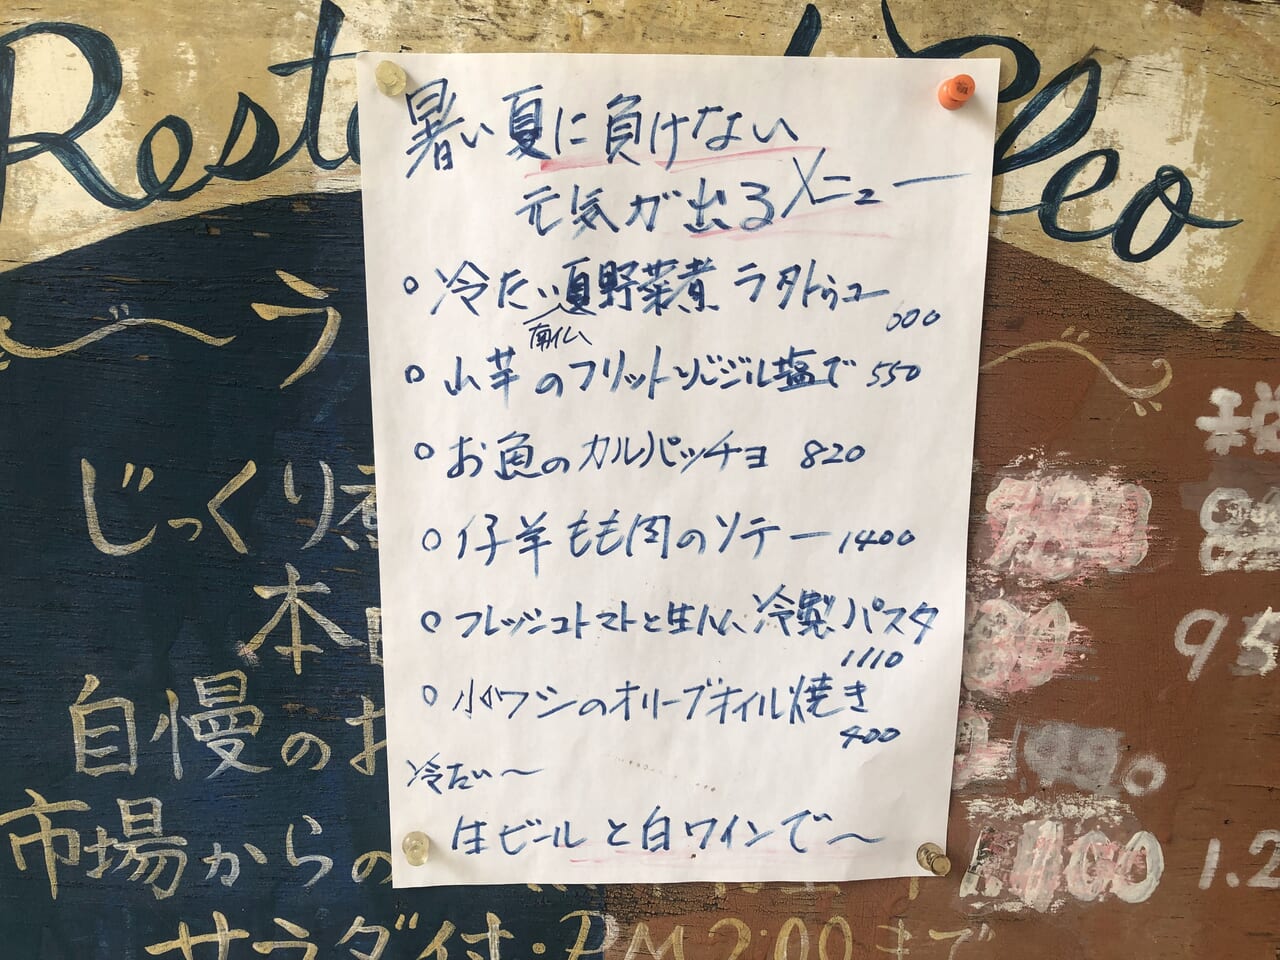 暑い夏に負けない
元気が出るメニュー
冷たい夏野菜煮 ラタトゥユー
南仏
600
山芋のフリットバジル塩で 550
お魚のカルパッチョ 820
仔羊もも肉のソテー 1400
フレッシュトマトと生ハム冷製パスタ
1110
小イワシのオリーブオイル焼き
400
冷たい〜
生ビールと白ワインで〜
Rest
leo
ラ
じっくり煮
本日
95
自慢のお
市場からの
1.2
サラダ付・PM2:00まで